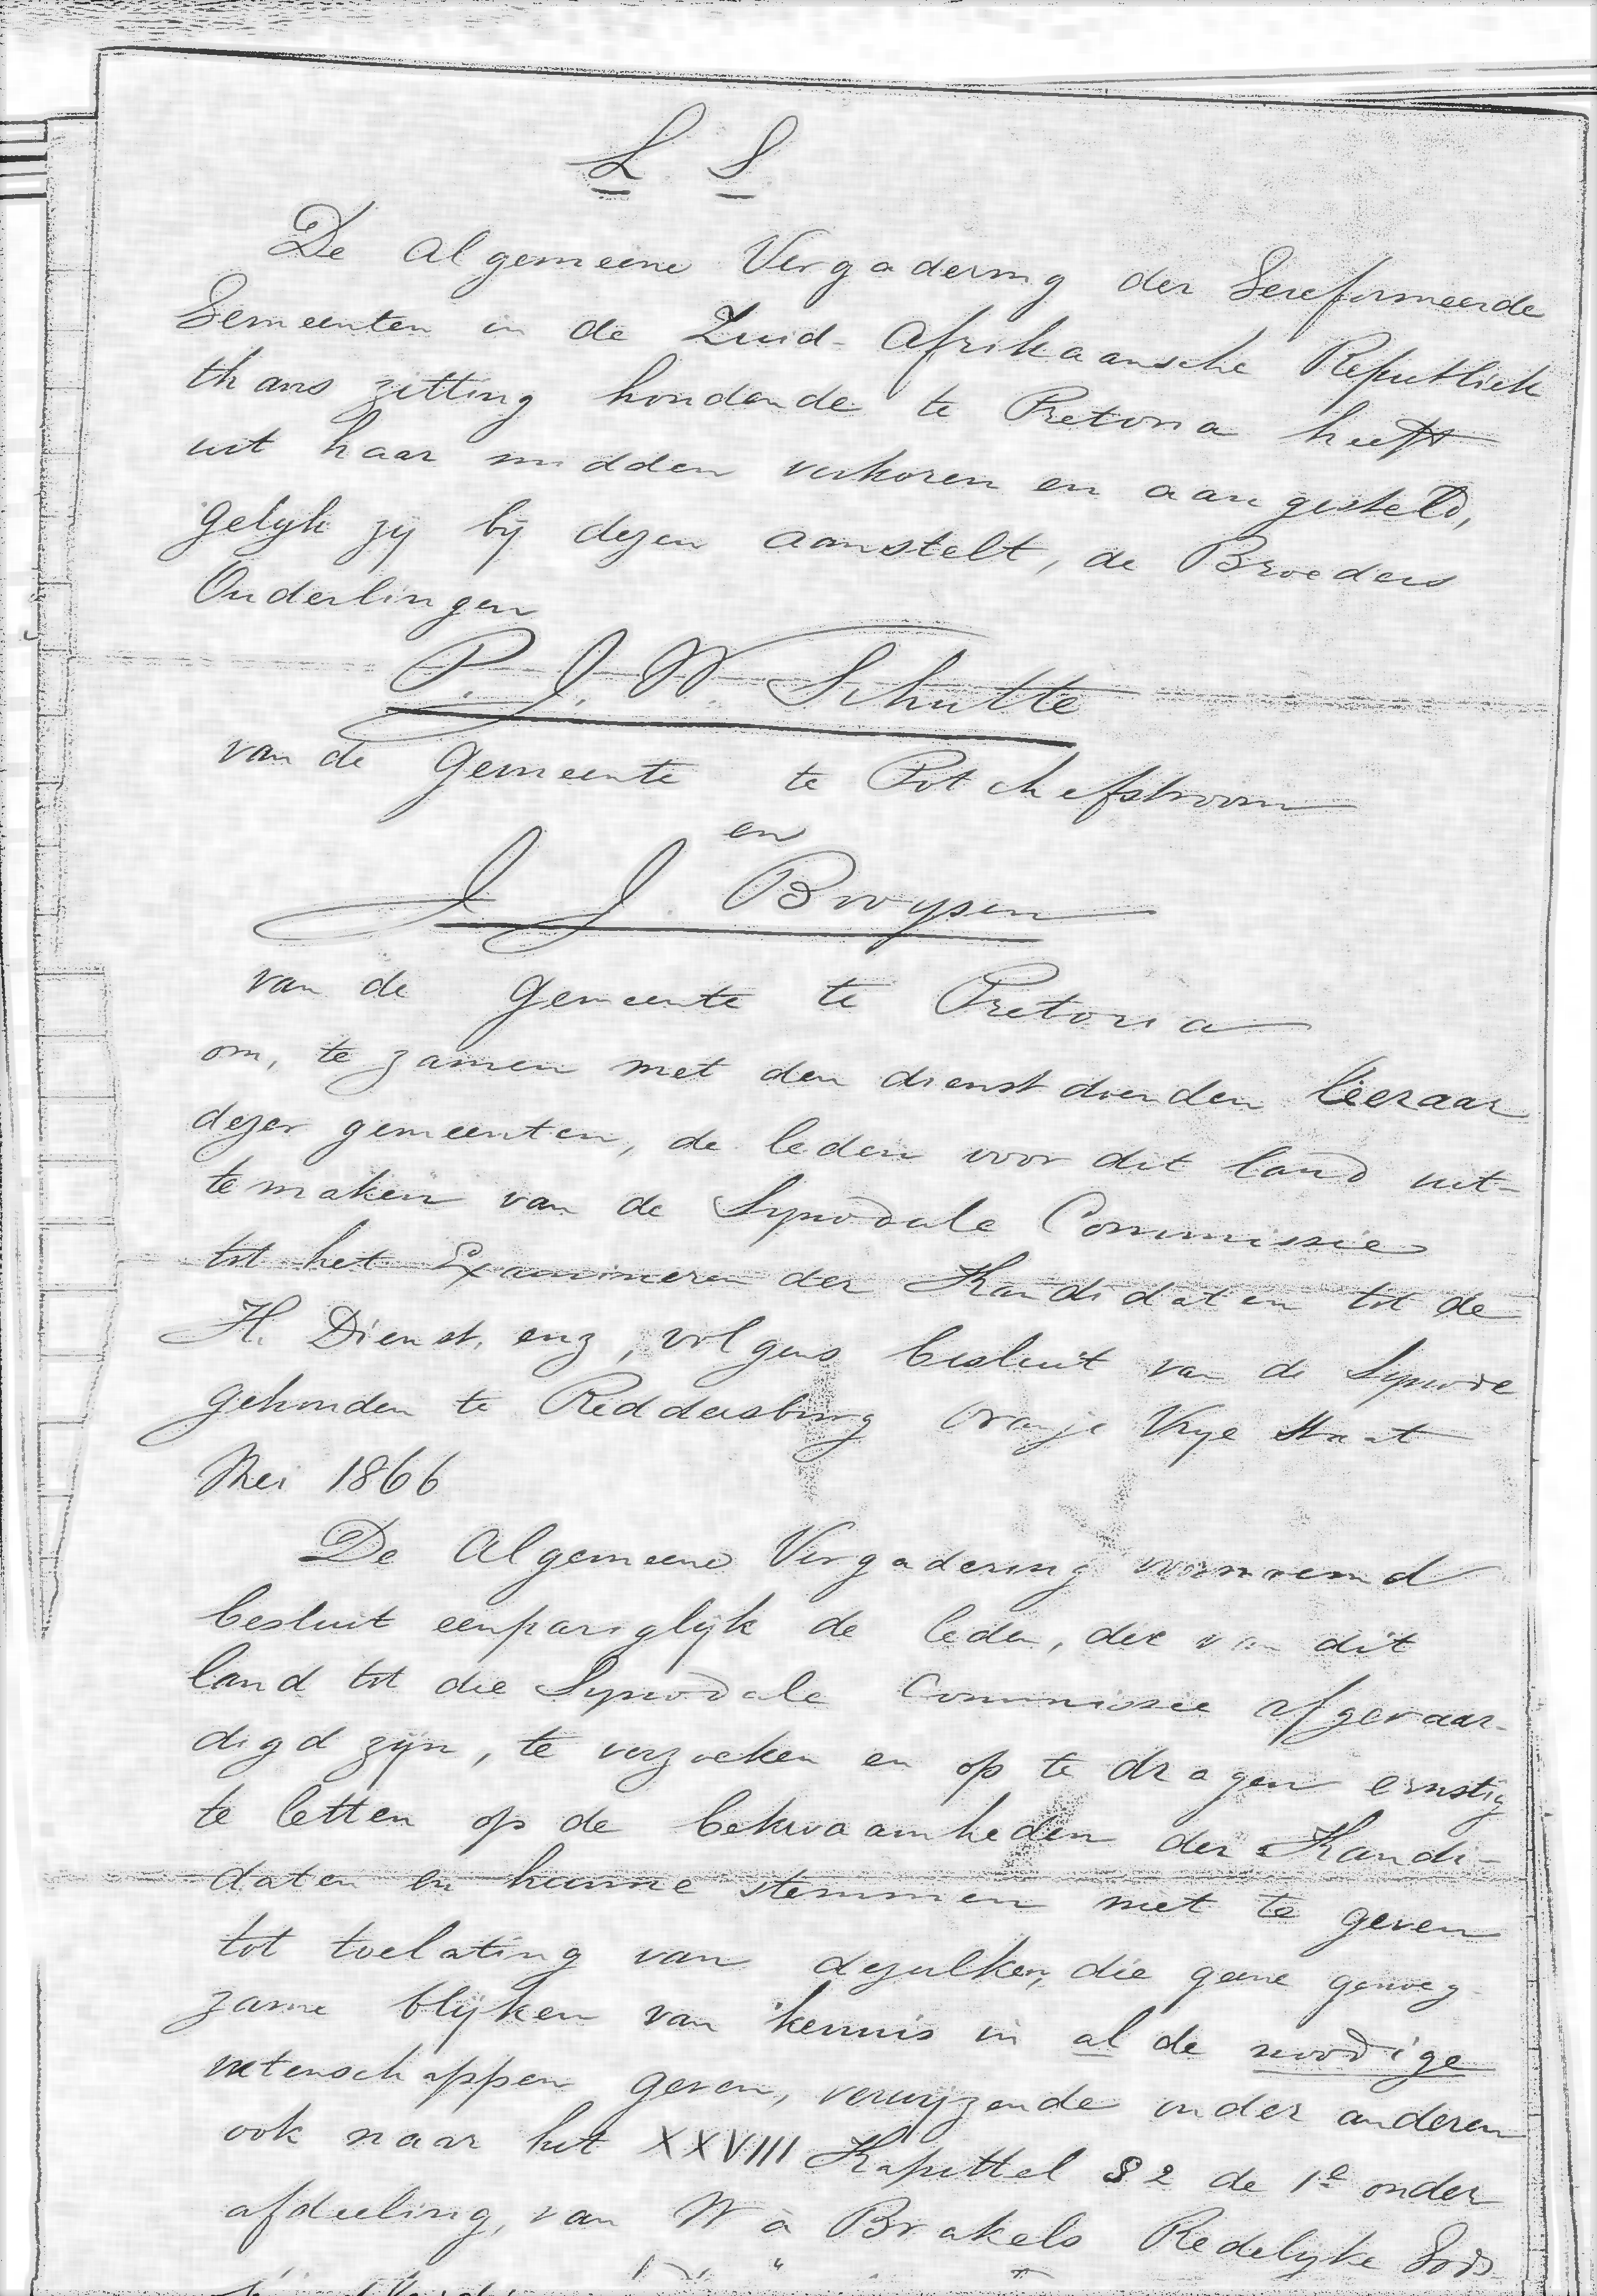 L. S.
De Algemeene Vergadering der Gereformeerde
Gemeenten in de Zuid-Afrikaansche Republiek
thans zitting houdende te Pretoria heeft
uit haar midden verkoren en aangesteld,
gelijk zij bij dezen aanstelt, de Broeders
Ouderlingen
P. J. W. Schutte
van de Gemeente te Potchefstroom
en
J J. Bruysen
van de Gemeente te Pretoria
om, te zamen met den dienstdoenden leeraar
dezer gemeenten, de leden voor dit land uit-
te maken van de Synodale Commissie
tot het Examineren der Kandidaten tot de
H. Dienst, enz, volgens besluit van de Synode
gehouden te Reddersburg Oranje Vrije Staat
Mei 1866
De Algemeene Vergadering voornoemd
besluit eenpariglijk de leden, die van dit
land tot die Synodale Commissie afgevaar-
digd zijn, te verzoeken en op te dragen ernstig
te letten op de bekwaamheden der Kandi-
daten en hunne stemmen niet te geven
tot toelating van dezulken, die geene genoeg-
zame blijken van kennis in al de noodige
wetenschappen geven, verwijzende onder anderen
ook naar het XXVIII Kapittel § 2 de 1e onder
afdeeling, van W à Brakels Redelijke Gods